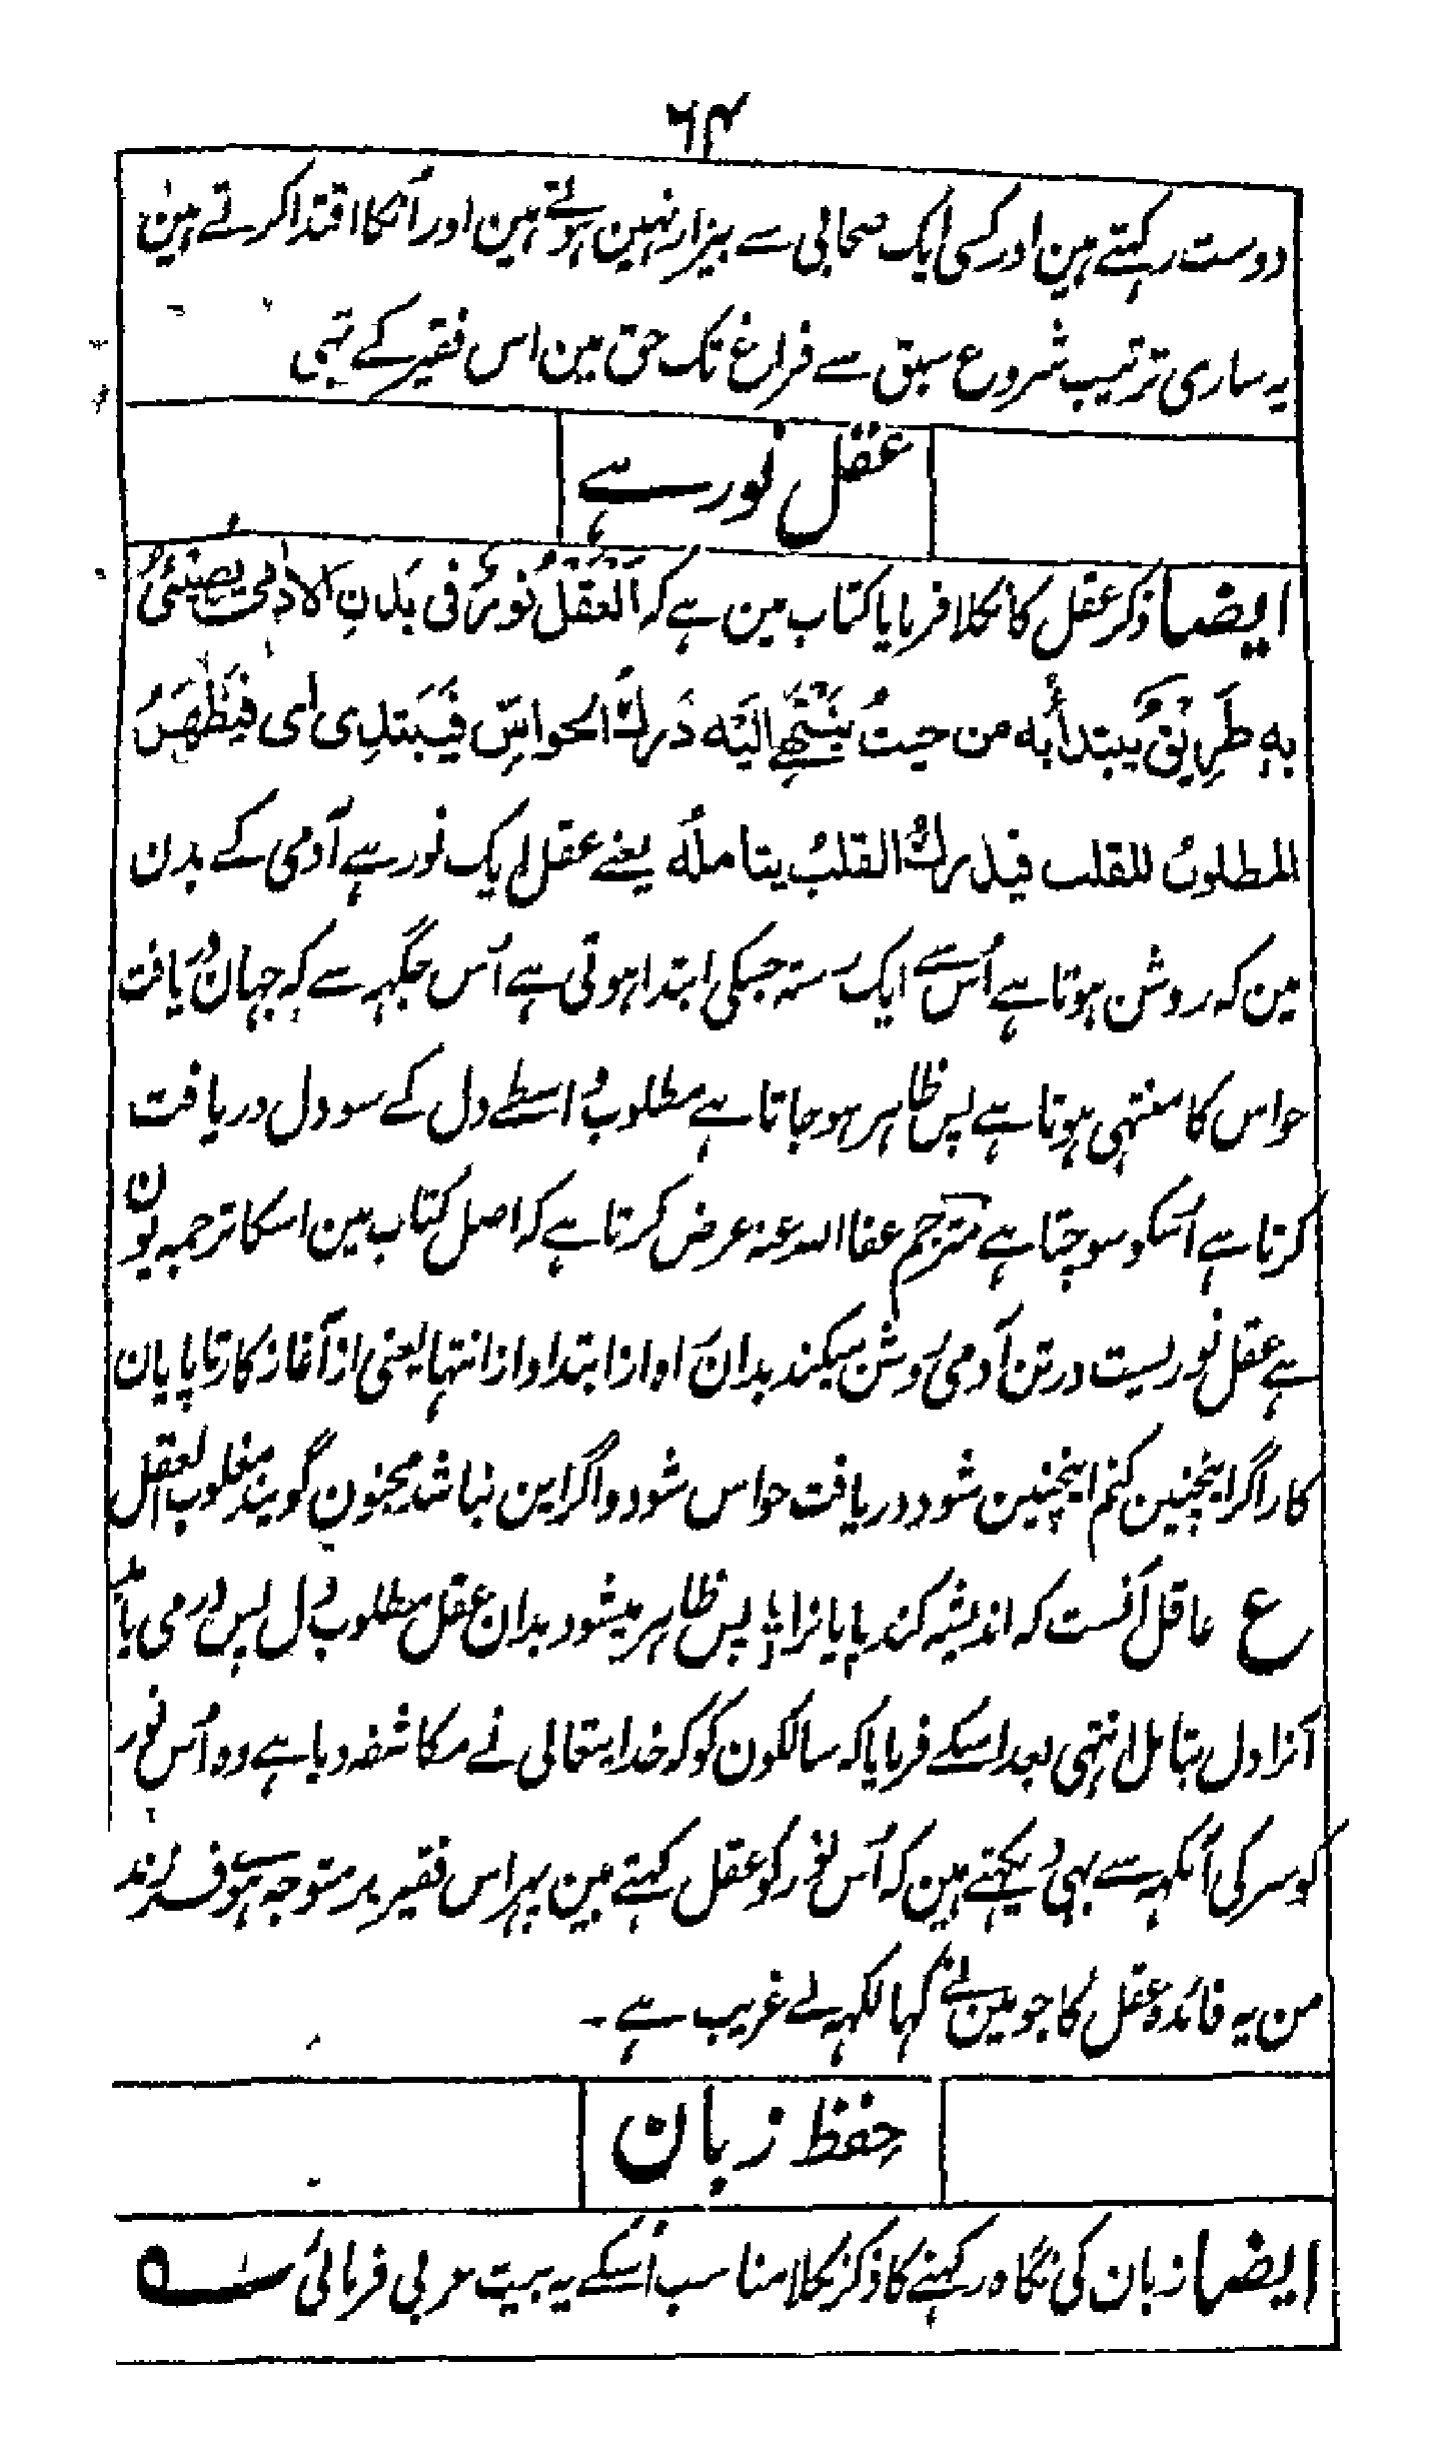 ٦٤
دوست رکہتے ہین اور کسی ایک صحابی سے بیزار نہین ہوتے ہین اور اُنکا اقتدا کرتے ہین
یہ ساری ترتیب شروع سبق سے فراغ تک حق مین اس فقیر کے تہی
عقل نور ہے
ایضا ذکر عقل کا نکلا فرمایا کتاب مین ہے کہ اَلْعَقْلُ نُورٌ فی بَدَنِ الاٰدمی یُضِیْئُ
بِهٖ طَرِیْقٌ یُبتدأُ بِه من حیثُ یَنْتَهِیْ اِلَیْه دَرْكُ الحواسِّ فَیَبْتَدِی ای فیَظْهَرُ
المطلوبُ للقلب فیدرکُ القلبُ بتاملهٖ یعنے عقل ایک نور ہے آدمی کے بدن
مین کہ روشن ہوتا ہے اُس سے ایک رستہ جسکی ابتدا ہوتی ہے اُس جگہہ سے کہ جہان دریافت
حواس کا منتہی ہوتا ہے پس ظاہر ہو جاتا ہے مطلوب واسطے دل کے سو دل دریافت
کرتا ہے اُسکو سوچتا ہے مترجم عفا اللہ عنہ عرض کرتا ہے کہ اصل کتاب مین اسکا ترجمہ یون
ہے عقل نوریست در تن آدمی روشن میکند بدان راہ از ابتدا و از انتہا یعنی از آغاز کار تا پایان
کار اگر اینچنین کنم اینچنین شود دریافت حواس شود و اگر این نباشد مجنون گویند مغلوب العقل
ع عاقل آنست کہ اندیشہ کند پایانرا ؛ پس ظاہر میشود بدان عقل مطلوب دل پس در می یابد
آنرا دل بتامل انتہی بعد اسکے فرمایا کہ سالکون کو کہ خدایتعالی نے مکاشفہ دیا ہے وہ اُس نور
کو سر کی آنکہہ سے بہی دیکہتے ہین کہ اُس نور کو عقل کہتے ہین پہر اس فقیر پر متوجہ ہوے فرزند
من یہ فائدہ عقل کا جو مین نے کہا لکہہ لے غریب ہے ۔
حفظ زبان
ایضا زبان کی نگاہ رکہنے کا ذکر نکلا مناسب اُسکے یہ بیت عربی فرمائی